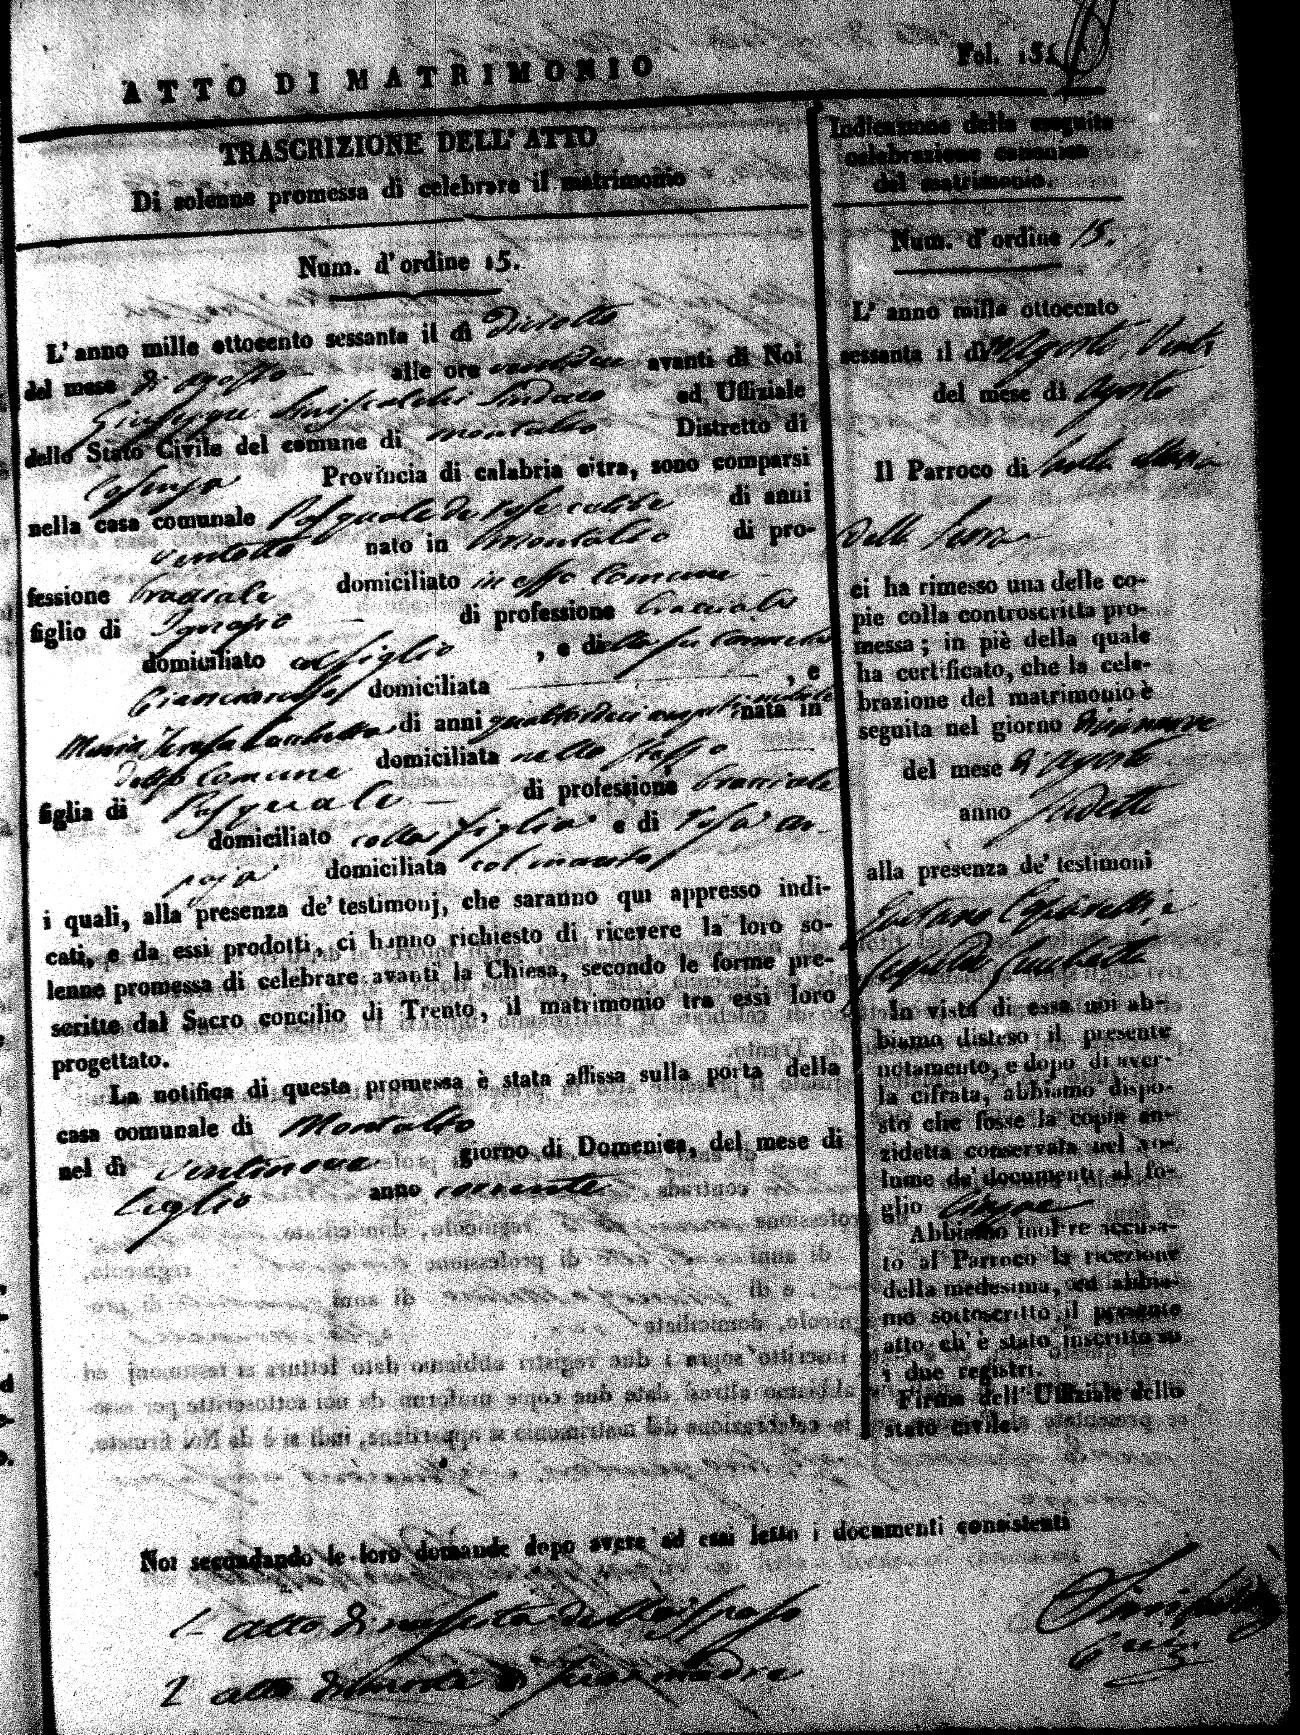 ATTO DI MATRIMONIO
Fol. 15
TRASCRIZIONE DELL' ATTO
Di solenne promessa di celebrare il matrimonio
Num. d'ordine 15.
L'anno mille ottocento sessanta il dì diciotto
del mese di agosto alle ore avanti di Noi
Giuseppe Siniscalchi Sindaco ed Uffiziale
dello Stato Civile del comune di Montalto Distretto di
Cosenza Provincia di calabria citra, sono comparsi
nella casa comunale Pasquale de Rose celibe di anni
ventotto nato in Montalto di pro-
fessione bracciale domiciliato in esso Comune
figlio di Ignazio di professione bracciale
domiciliato col figlio , e di della fu Carmela
domiciliata , e
Maria Teresa di anni quattordici nata in
detto Comune domiciliata nello stesso
figlia di Pasquale di professione bracciale
domiciliato colla figlia e di Rosa
domiciliata col marito
i quali, alla presenza de' testimonj, che saranno qui appresso indi-
cati, e da essi prodotti, ci hanno richiesto di ricevere la loro so-
lenne promessa di celebrare avanti la Chiesa, secondo le forme pre-
scritte dal Sacro concilio di Trento, il matrimonio tra essi loro
progettato.
La notifica di questa promessa è stata affissa sulla porta della
casa comunale di Montalto
nel dì ventinove giorno di Domenica, del mese di
luglio anno corrente
Noi secondando le loro domande dopo avere ad essi letto i documenti consistenti
1° atto di nascita dello sposo
2 atto di morte di sua madre
Indicazione della seguita
celebrazione canonica
del matrimonio.
Num. d'ordine 15.
L'anno mille ottocento
sessanta il dì venti
del mese di Agosto
Il Parroco di Santa Maria
della Serra
ci ha rimesso una delle co-
pie colla controscritta pro-
messa; in piè della quale
ha certificato, che la cele-
brazione del matrimonio è
seguita nel giorno diecinnove
del mese di Agosto
anno sudetto
alla presenza de' testimoni
Gaetano
In vista di essa noi ab-
biamo disteso il presente
notamento, e dopo di aver-
la cifrata, abbiamo dispo-
sto che fosse la copia an-
zidetta conservata nel vo-
lume de' documenti al fo-
glio cinque
Abbiamo inoltre accusa-
to al Parroco la ricezione
della medesima, ed abbia-
mo sottoscritto il presente
atto, ch' è stato inscritto su
i due registri.
Firma dell' Uffiziale dello
stato civile.